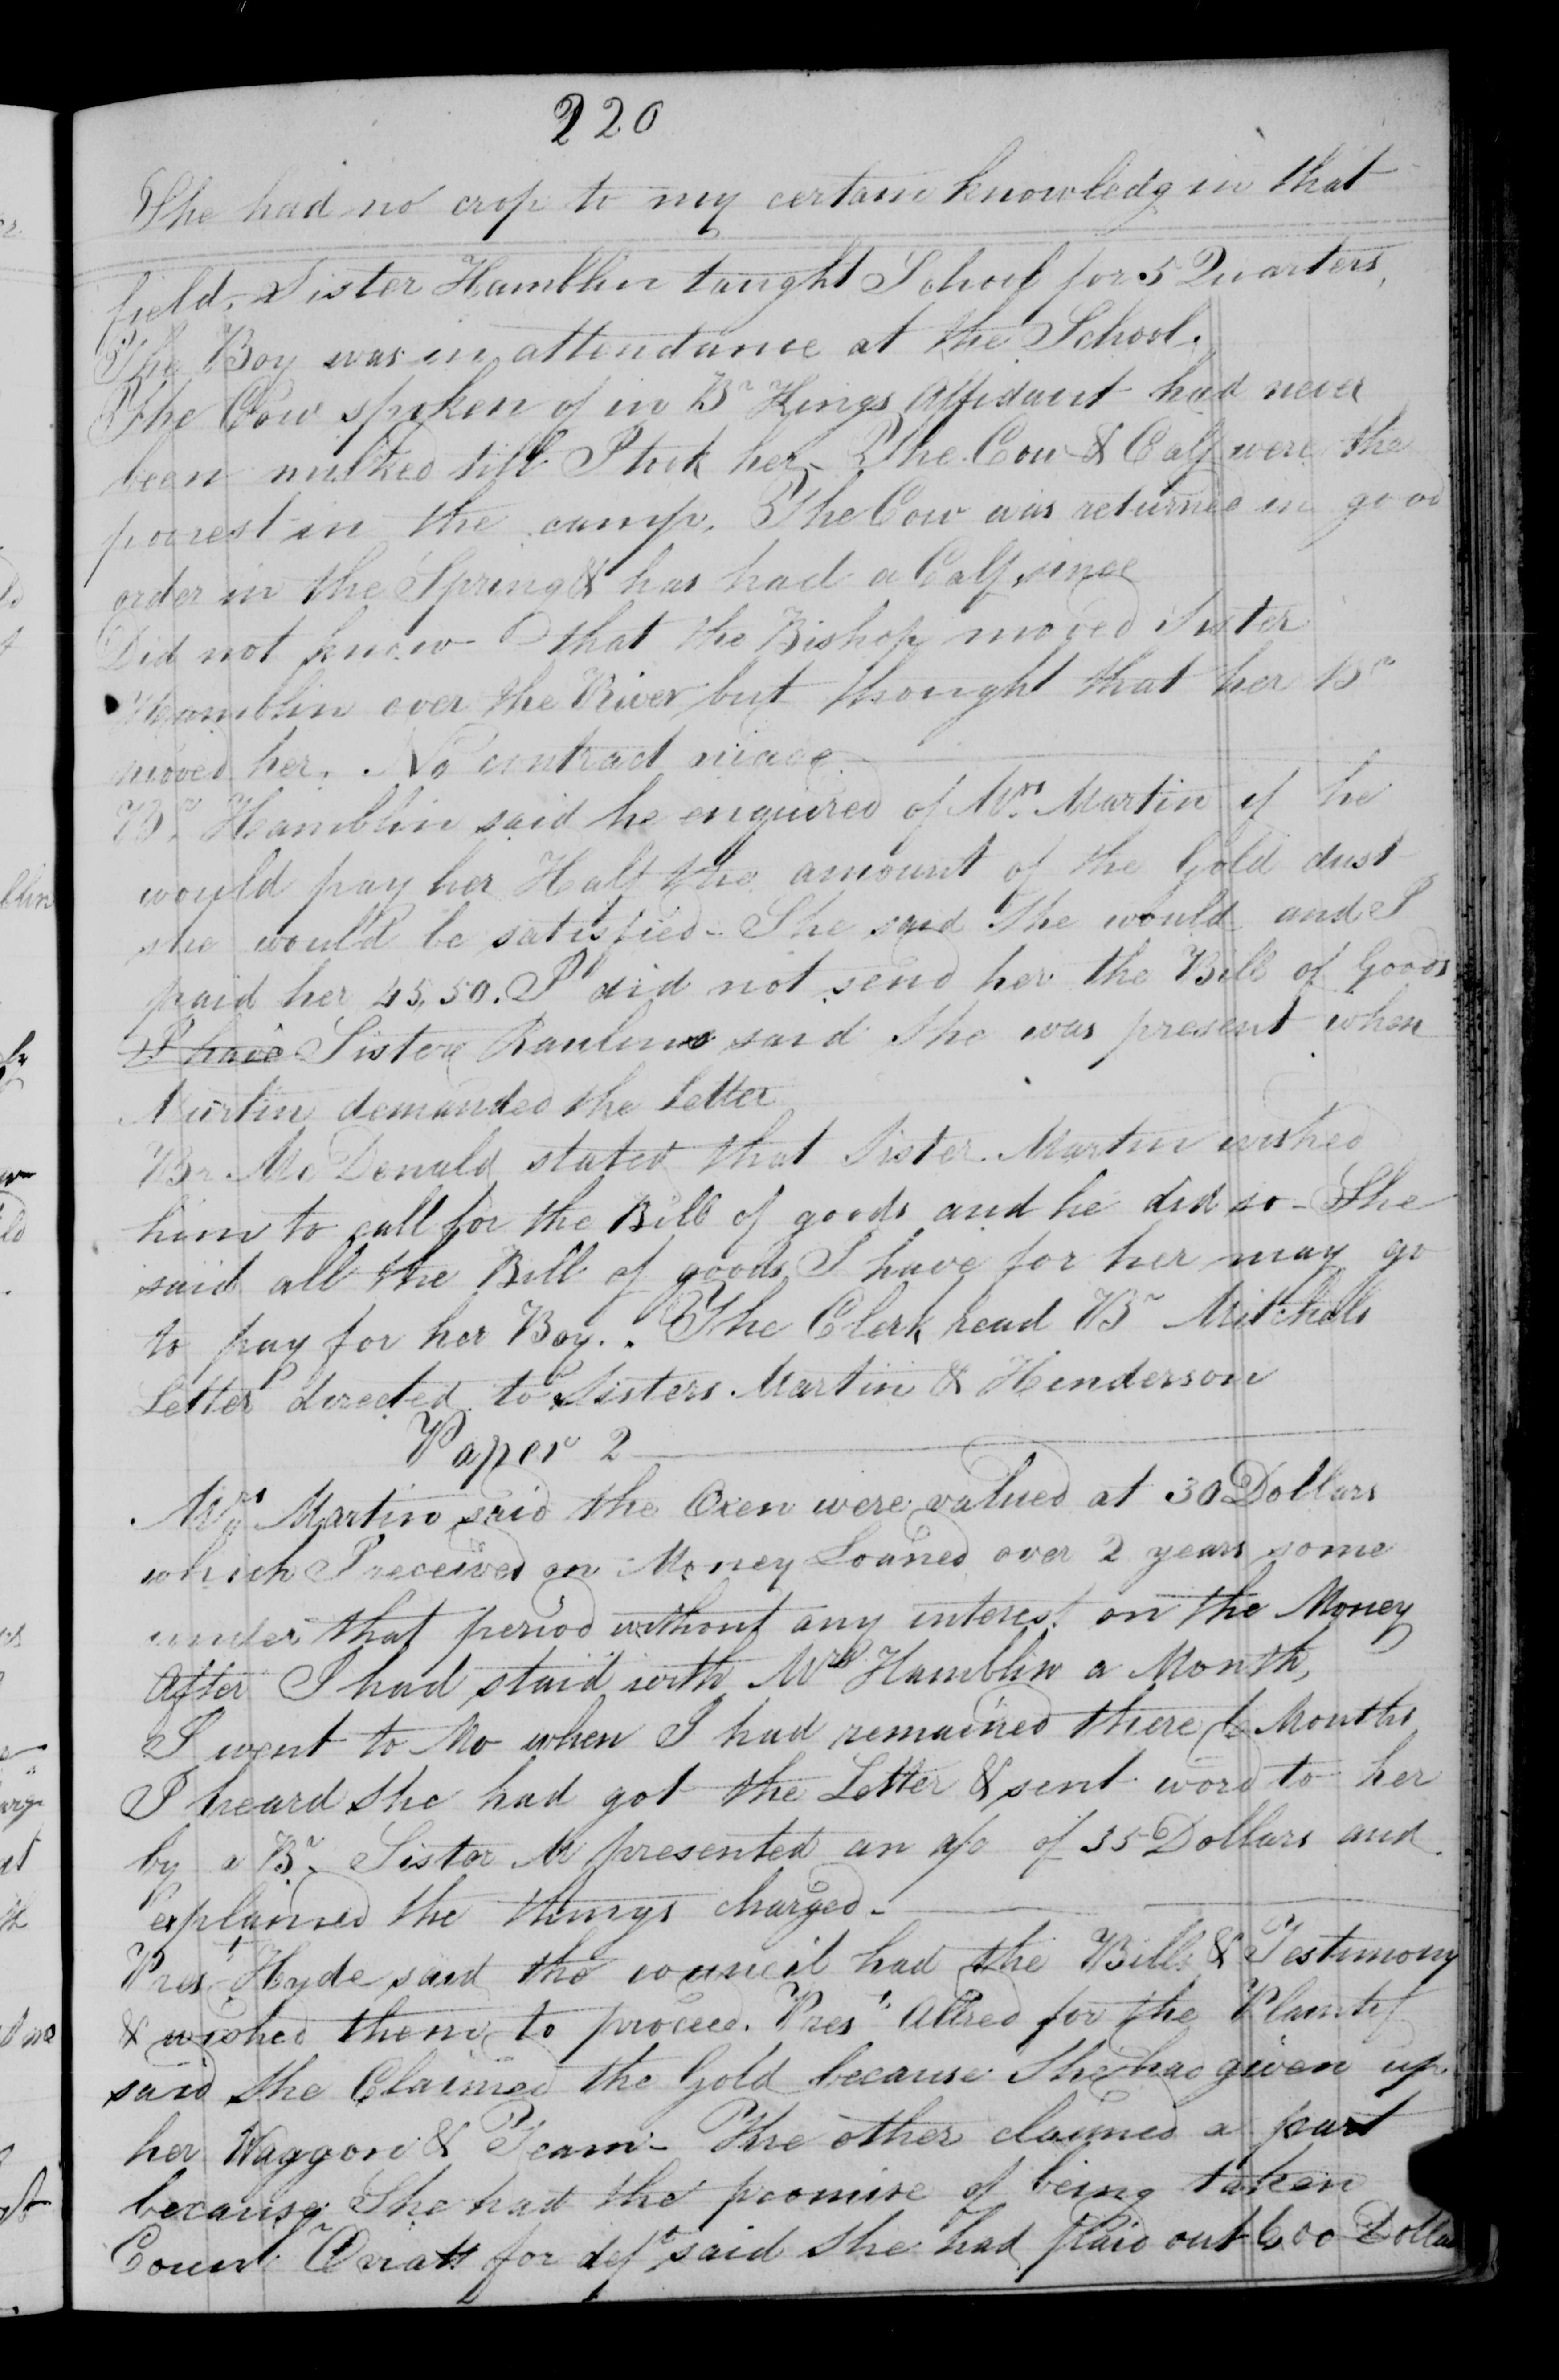 220
She had no crop to my certain knowledg in that
field. Sister Hamblin taught School for 5 Quarters,
The Boy was in attendance at the School.
The Cow spoken of in Br Kings Affidavit had never
been milked till I took her. The Cow & Calf were the
poorest in the camp. The Cow was returned in good
order in the Spring & has had a Calf since
Did not know that the Bishop moved Sister
Hamblin over the River but thought that her Br
moved her. No contract made
Br. Hamblin said he enquired of Mrs. Martin if he
would pay her Half the amount of the Gold dust
she would be satisfied - She said She would and I
paid her 45,50. I did not send her the Bill of Goods
I have Sister Rawlins said She was present when
Martin demanded the Letter
Br Mc Donald stated that Sister Martin wished
him to call for the Bill of goods and he did so - She
said all the Bill of goods I have for her may go
to pay for her Boy. . The Clerk read Br Mitchels
Letter directed to Sisters Martin & Henderson
Paper 2
Mrs Martin said the Oxen were valued at 30 Dollars
which I received on Money Loaned over 2 years some
under that period without any interest on the Money
After I had staid with Mrs Hamblin a Month,
I went to Mo when I had remained there 6 Months
I heard She had got the Letter & sent word to her
by a Br. Sister M presented an a/c of 35 Dollars and
explained the things charged -
Prest Hyde said the council had the Bills & Testimony
& wished them to proceed. Prest Allred for the Plaintif
said She Claimed the Gold because She had given up
her Waggon & Team - The other claimed a part
because She had the promise of being taken
Counr for deft said She had paid out 600 Dollars